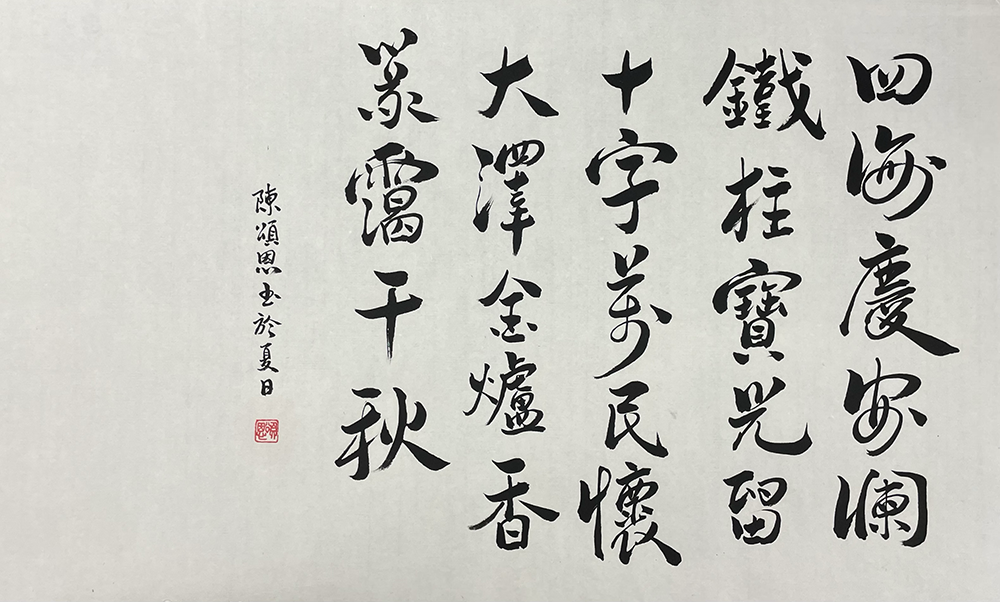 四海慶安瀾
鐵柱寶光留
十字萬民懷
大澤金爐香
篆靄千秋
陳頌恩書於夏日
頌恩